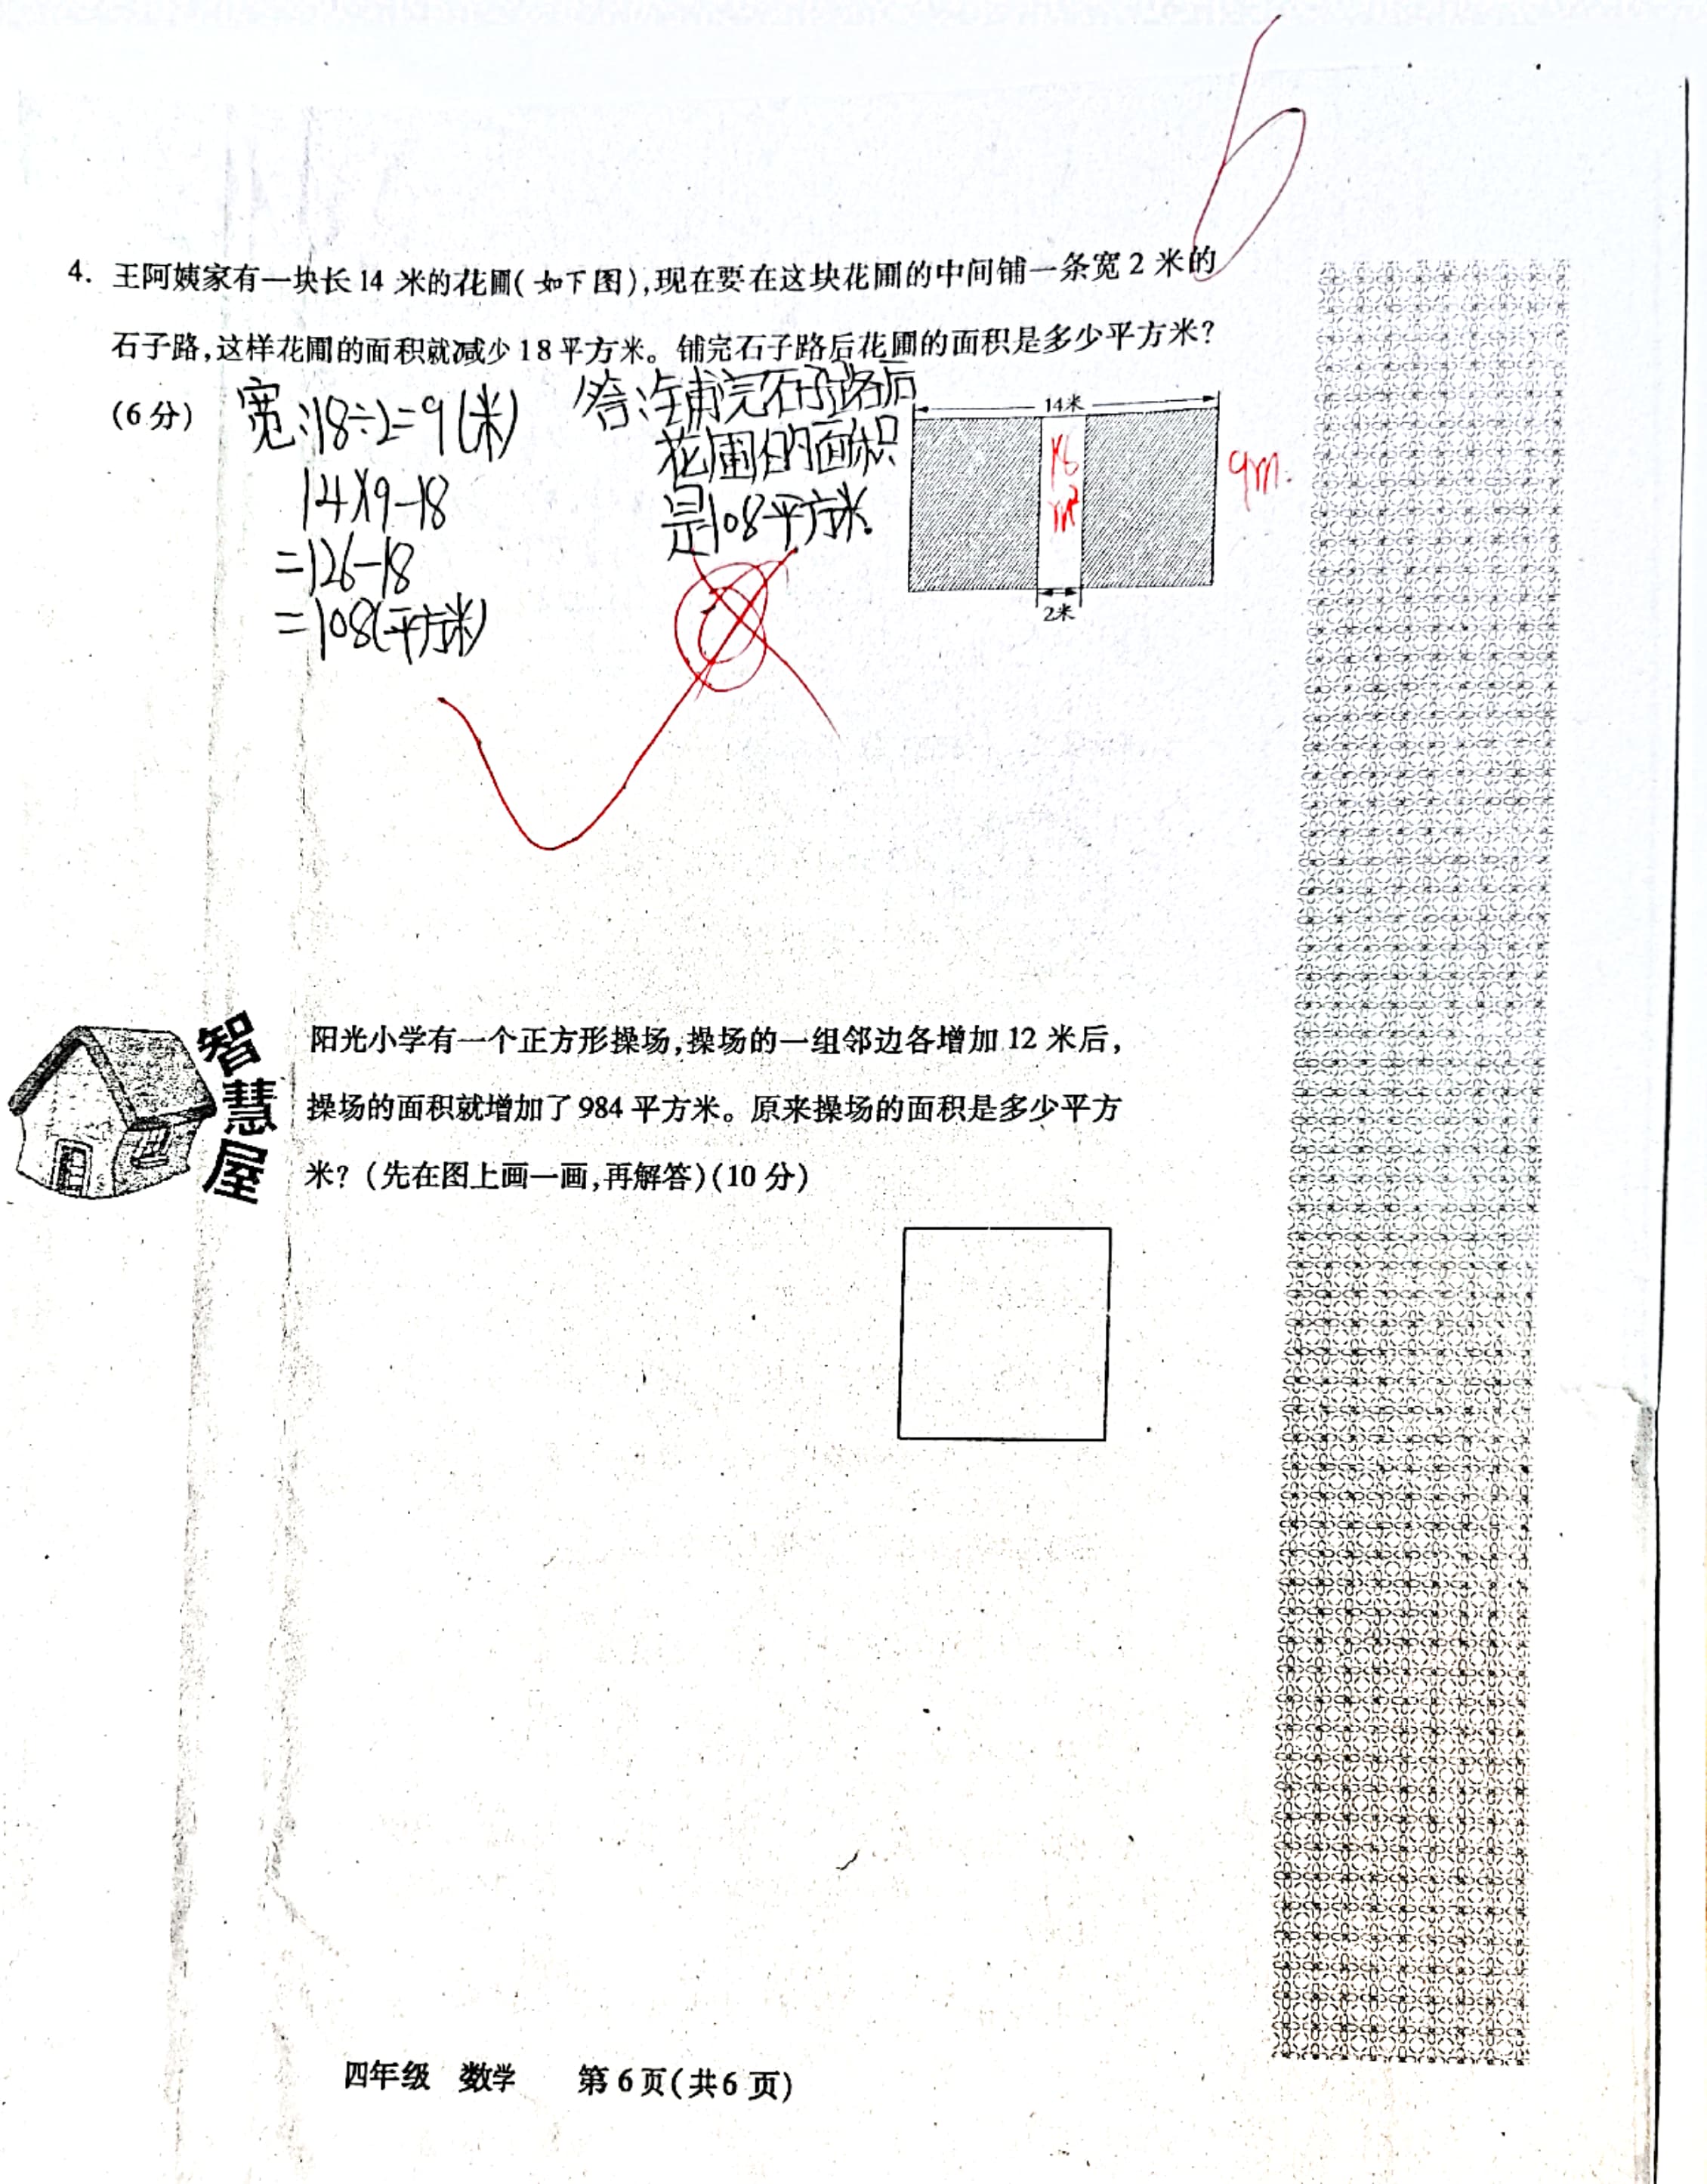 6
4. 王阿姨家有一块长 14 米的花圃(如下图),现在要在这块花圃的中间铺一条宽 2 米的
石子路,这样花圃的面积就减少 18 平方米。铺完石子路后花圃的面积是多少平方米?
(6 分)
宽:18÷2=9(米)
14×9-18
=126-18
=108(平方米)
答:铺完石子路后
花圃的面积
是108平方米.
14米
9m.
2米
智慧屋
阳光小学有一个正方形操场,操场的一组邻边各增加 12 米后,
操场的面积就增加了 984 平方米。原来操场的面积是多少平方
米?(先在图上画一画,再解答)(10 分)
四年级 数学 第 6 页(共 6 页)